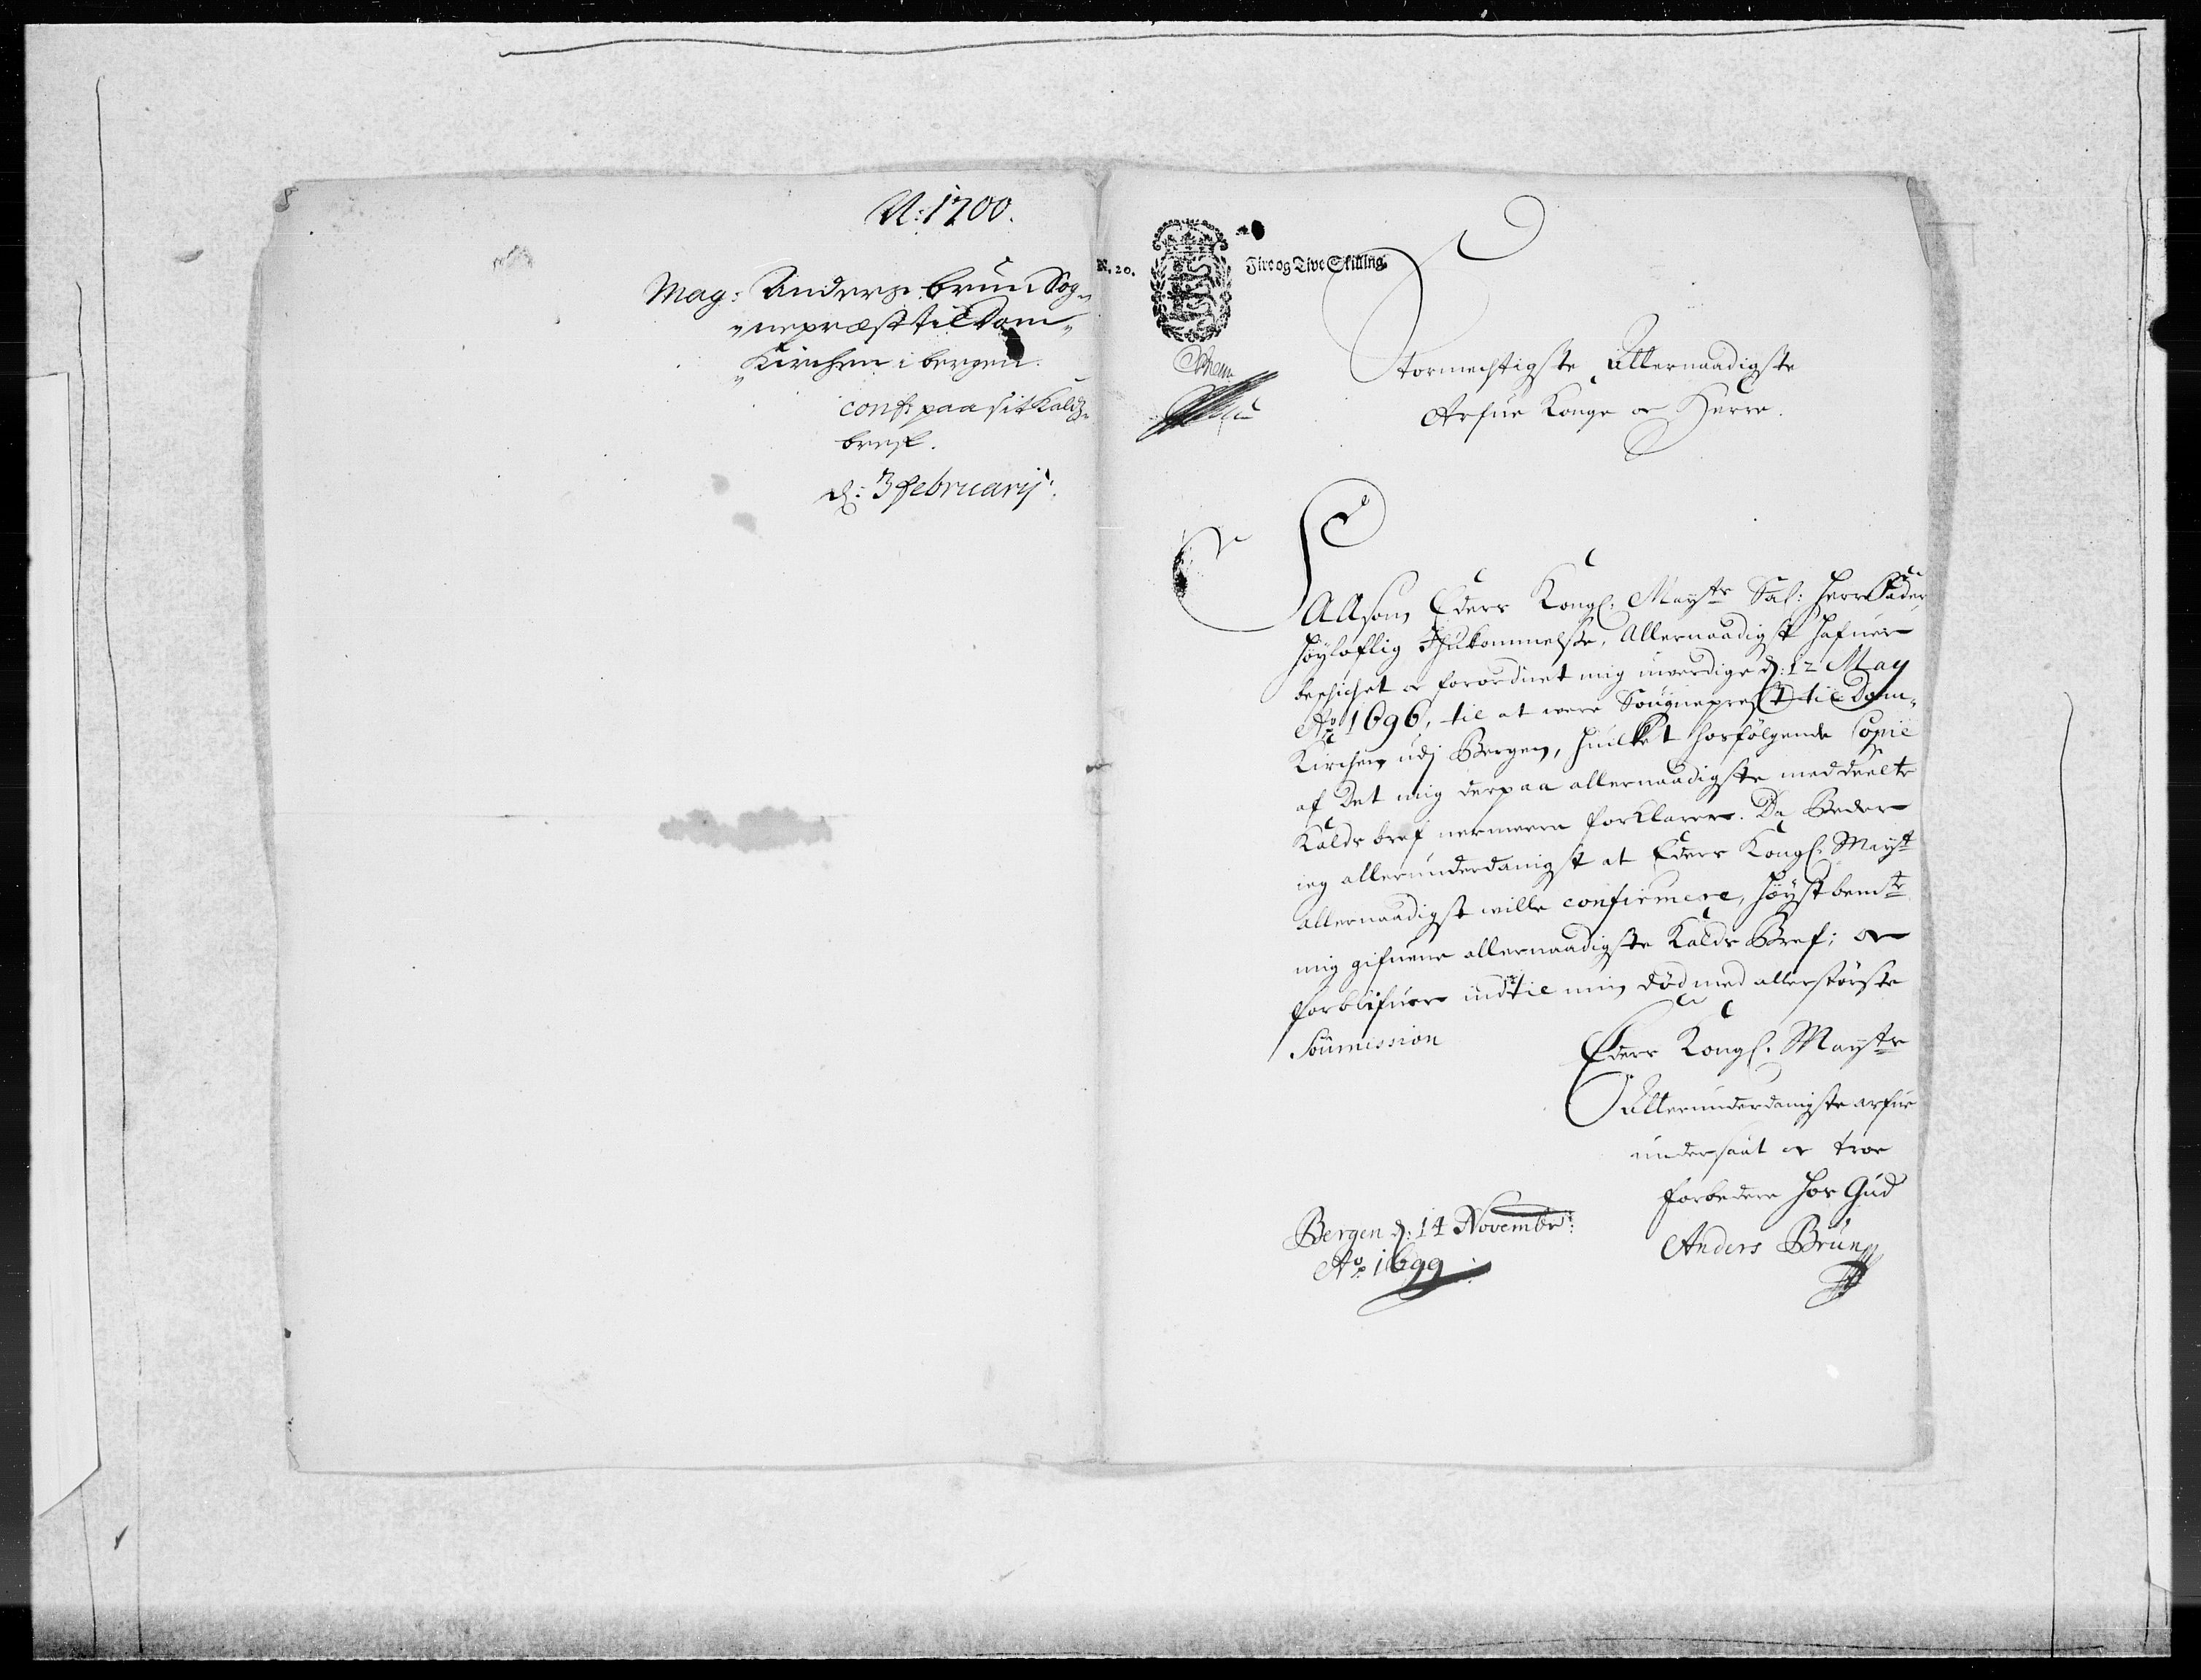 8
A: 1700.
Mag: Anders Brun Sog-
-nepræst til Dom-
-Kirchen i bergen.
conf: paa sit Kaldz-
bref.
d: 3 februarij
N. 20.
Fire og Tive Skilling
Stormechtigste Allernaadigste
Arfue Konge oc Herre.
SAAsom Eders Kongl: Mayts Sal: Herr Fader
høyloflig Ihukommelse, Allernaadigst hafuer
beschichet oc forordnet mig uverdige d: 12 May
Ao 1696, til at were Sougneprest til Dom-
Kirchen udj Bergen, huilket hosfølgende Copie
af Det mig derpaa allernaadigste meddeelte
Kalds bref nermeere forklarer. Da Beder
ieg allerunderdanigst at Eders Kongl: Mayt
allernaadigst wille confirmere, høystbemte
mig gifuene allernaadigste Kalds Bref; oc
forblifuer indtil min død med allerstørste
Soumission
Eders Kongl: Mayts
Allerunderdanigste arfue
undersaat oc troe
forbedere hos Gud
Anders Brun
Bergen d: 14 Novembr:
Ao 1699